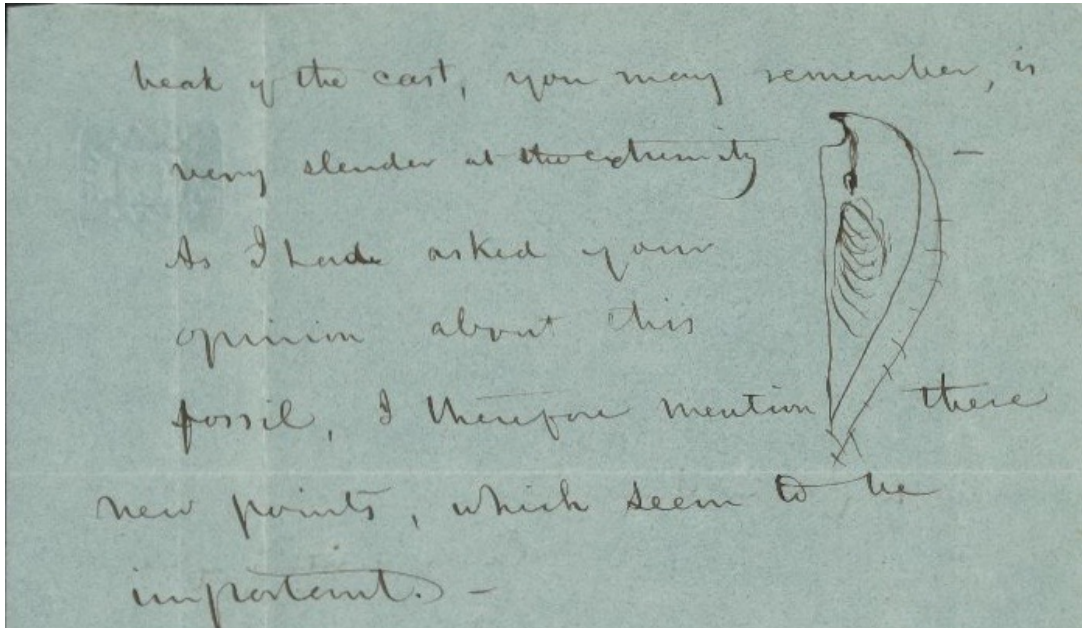 beak of the cast, you may remember, is
very slender at the extremity —
As I had asked your
opinion about this
fossil, I therefore mention these
new points, which seem to be
important. —